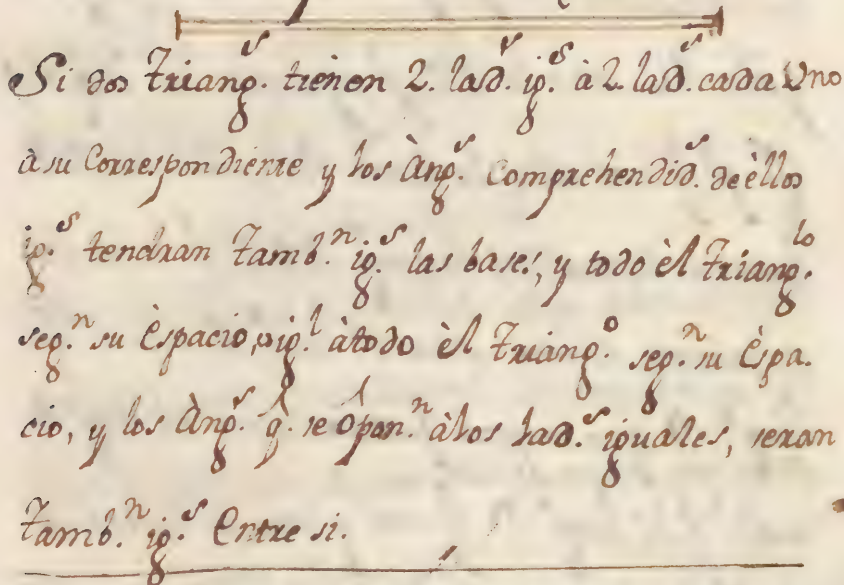 Si dos Triang.s tienen 2. lad.s ig.s à 2. lad.s cada Uno
à su Correspondiente y los Àng.s Comprehendid.s de èllos
ig.s tendran Tamb.n ig.s las bases, y todo èl Triang.lo
seg.n su Èspacio, ig.l àtodo èl Triang.o seg.n su Èspa.
cio, y los Àng.s q̂. se Opon.n àlos lad.s iguales, seran
Tamb.n ig.s Entre si.